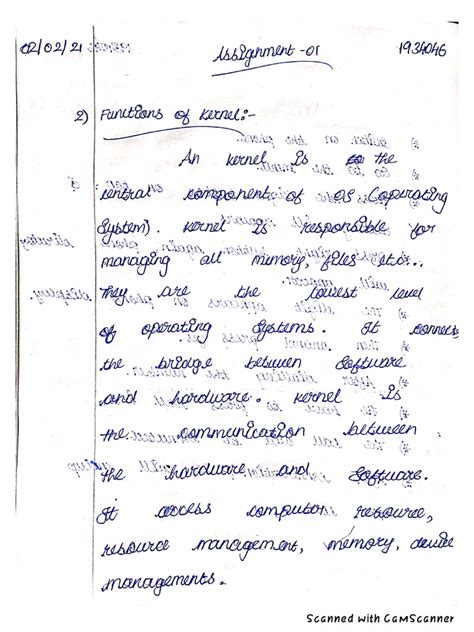 02/02/21 Assignment -01 1934046
2) Functions of kernel:-
An kernel is the
central component of OS (operating
System). kernel is responsible for
managing all memory, files etc...
They are the lowest level
of operating Systems. It connects
the bridge between Software
and hardware. kernel is
the communication between
the hardware and Software.
It access computor resource,
resource management, memory, device
managements.
Scanned with CamScanner